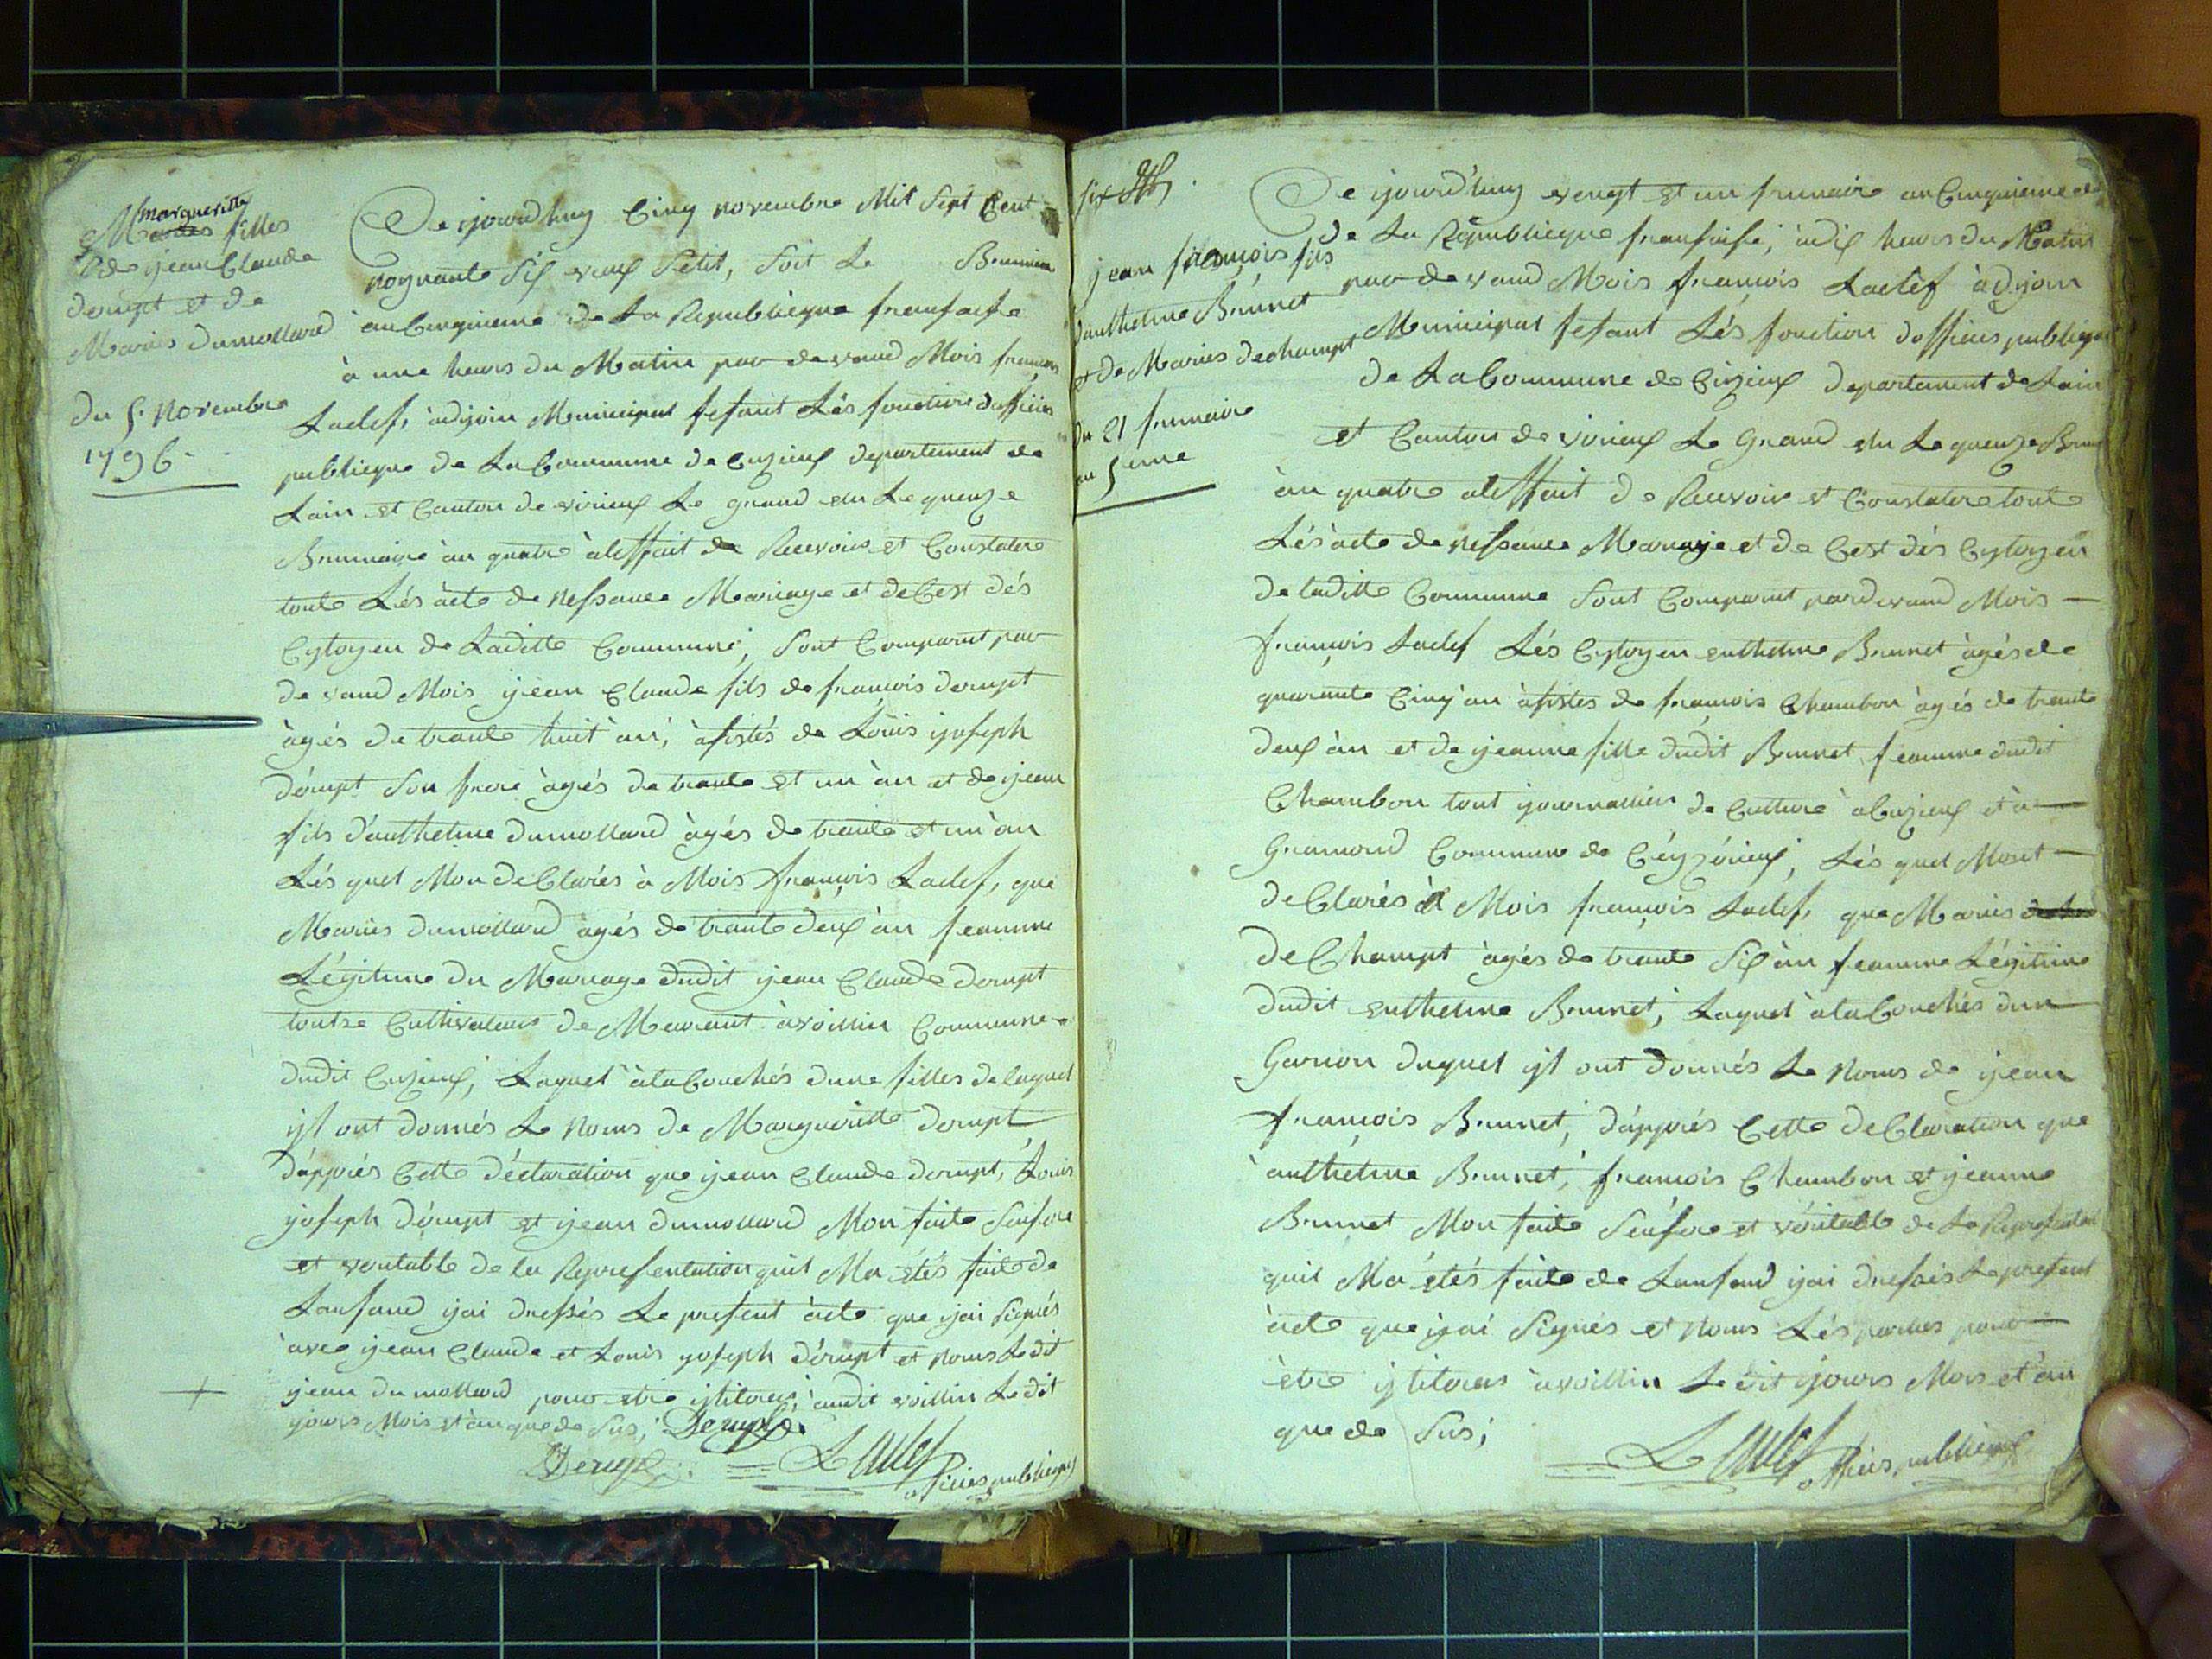 margueritte
Maries filles
de ijean Claude
derupt et de
Maries dumollard
du 5. Novembre
1796
Ce ijourdhuy Cinq novembre Mil Sept Cent
nognante Six vieux Stil, Soit Le Brumaire
an Cinquieme de La Republieque fransaise
à une heurs du Matin par de vand Mois francois
Laclef, adijoin Municipal fesant Lés fonctions dofficiers
publieque de La Commune de Cuzieux departement de
Lain et Canton de virieux Le grand elu Le quenze
Brumaire àn quatre à leffait de Recevoir et Constatere
toute Lés àcte de nessance Mariage et deCest dés
Cytoyen de Laditte Commune, Sont Comparut par
de vand Mois ijean Claude fils de francois derupt
àgés de trante huit àn, àsistés de Louis ijoseph
dérupt Son frere àgés de trante et un àn et de ijean
fils d'anthelme dumollard àgés de trante et un àn
Lés quel Mon deClarés à Mois françois Laclef, que
Maries dumollard àgés de trante deux àn feamme
Légitime du Mariage dudit ijean Claude derupt
toutse Cultivateurs deMeurant àvoillin Commune
dudit Cuzieux, Laquel àlaCouchés dune filles delaquel
ijl ont donnés Le Noms de Margueritte derupt
d'apprés Cette déclaration que ijean Claude derupt, Louis
ijoseph dérupt et ijean dumollard Mon faite Sinsere
et veritable de la Representation quil Ma étés faite de
Lanfand ijai dressés Le present àcte que ijai Signés
àvec ijean Claude et Louis ijoseph dérupt et nons Ledit
ijean dumollard pour etre ijlitores, àudit voillin Ledit
ijours Mois et àn que de Sus; Derupt
Derupt Laclef
officiers publieque
six
ijean françois fils
d'anthelme Brunet
et de Maries dechampt
du 21 frimaire
an 5eme
Ce ijourd'huy vengt et un frimaire an Cinquieme
de La Republieque fransaise, àdix heurs du Matin
par de vand Mois francois Laclef àdijoin
Municipal fesant Lés fonction dofficiers publieque
de La Commune de Cuzieux departement de Lain
et Canton de virieux Le Grand elu Le quenze Brum
àn quatre à leffait de Recevoir et Constatere toute
Lés àcte de nessance Mariage et de Cest dés Cytoyen
de laditte Commune Sont Comparut pardevand Mois
françois Laclef Lés Cytoyen enthelme Brunet àgés de
quarante Cinq àn àsistes de françois Chambon àgés de trante
deux àn et de ijeanne fille dudit Brunet feamme dudit
Chambon tout ijournalliers de Culture à Cuzieux et à
Gramond Commune de Céyzérieux, Lés quel Mont
deClarés à Mois françois Laclef, que Maries
deChampt àgés de trante Six àn feamme Légitime
dudit enthelme Brunet, Laquel à la Couchés dun
Garson duquel ijl ont donnés Le Noms de ijean
françois Brunet, d'apprés Cette deClaration que
ànthelme Brunet, françois Chambon et ijeanne
Brunet Mon faite Sinsere et véritable de La Representation
quil Ma étés faite de Lanfand ijai dressés Le present
àcte que ijai Signés et nons Lés parties pour
être ijlitores àvoillin Le dit ijours Mois et àn
que de Sus;
Laclef
officiers publieque